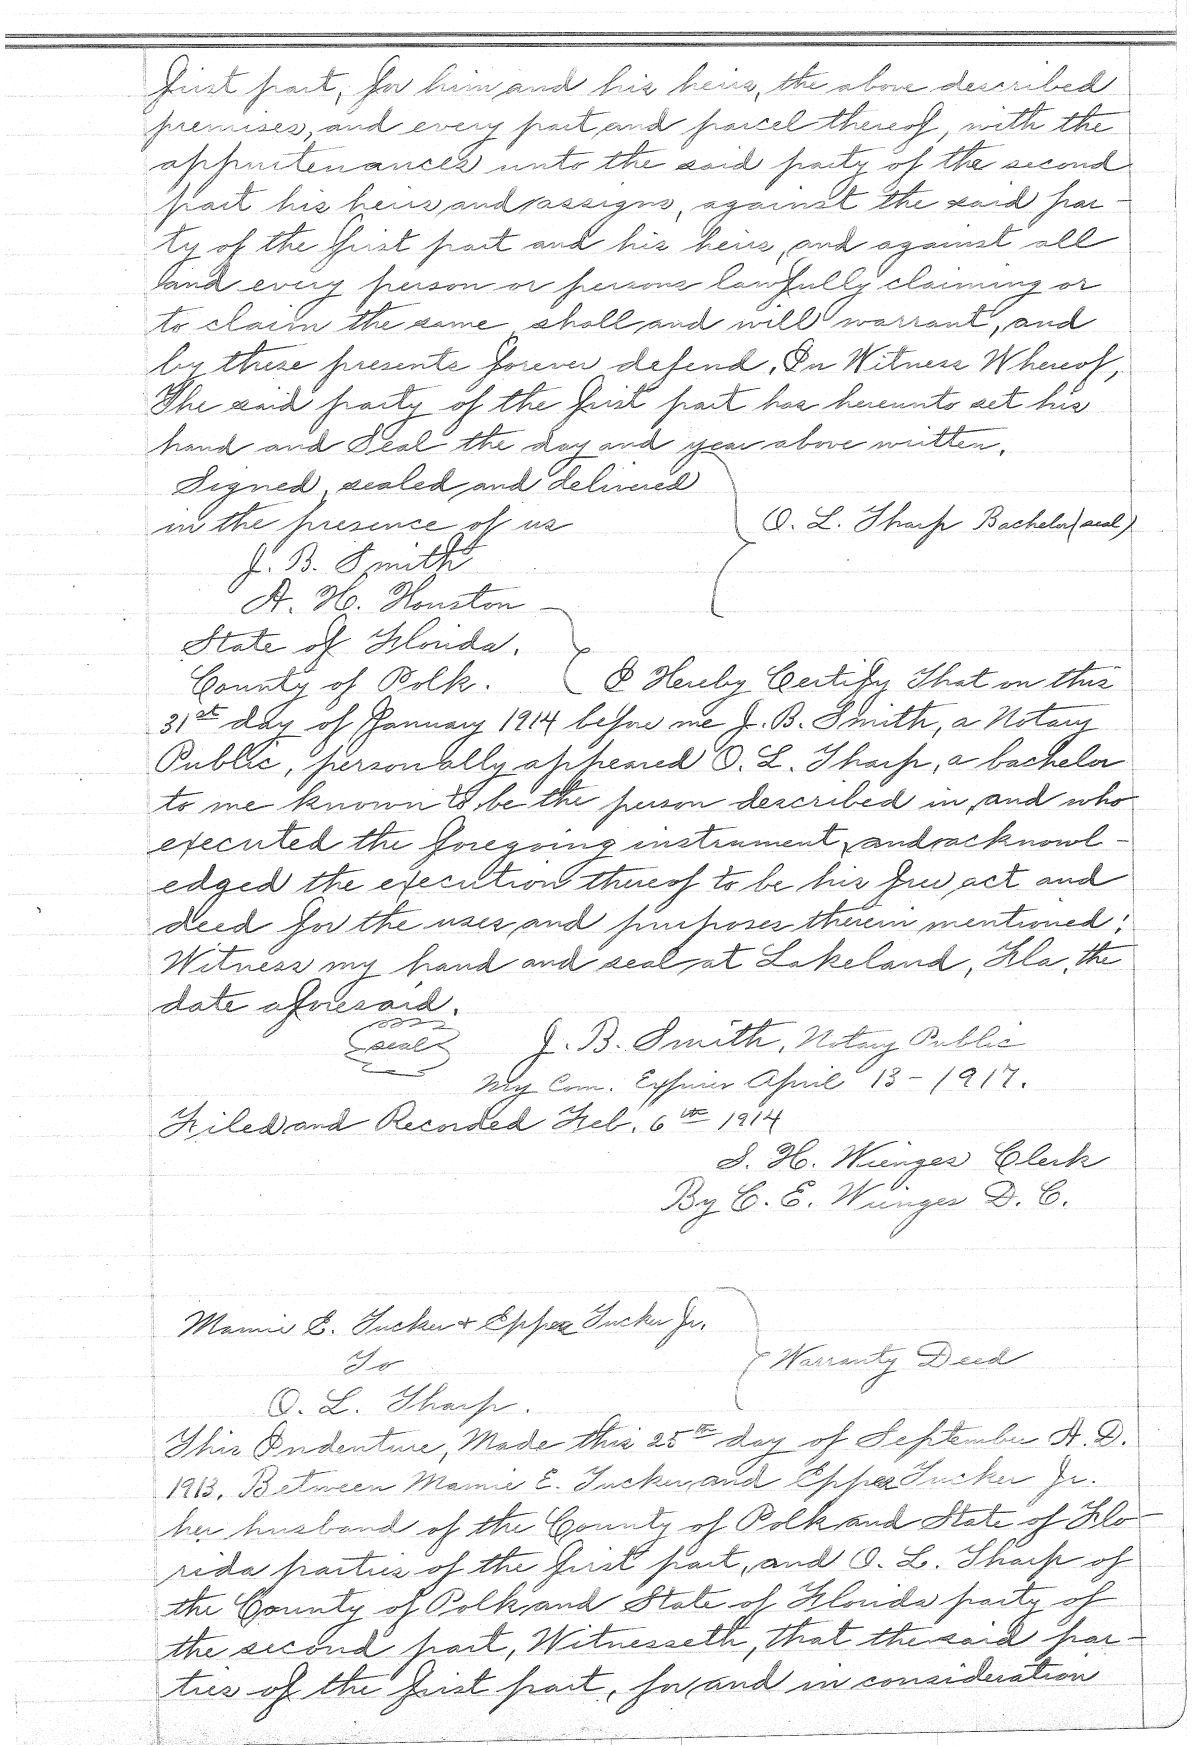 first part, for him and his heirs, the above described
premises, and every part and parcel thereof, with the
appurtenances unto the said party of the second
part his heirs and assigns, against the said par-
ty of the first part and his heirs, and against all
and every person or persons lawfully claiming or
to claim the same, shall and will warrant, and
by these presents forever defend. In Witness Whereof,
The said party of the first part has hereunto set his
hand and Seal the day and year above written.
Signed, sealed and delivered
in the presence of us
O. L. Tharp Bachelor (seal)
J. B. Smith
A. H. Houston
State of Florida.
County of Polk. I Hereby Certify That on this
31st day of January 1914 before me J. B. Smith, a Notary
Public, personally appeared O. L. Tharp, a bachelor
to me known to be the person described in, and who
executed the foregoing instrument, and acknowl-
edged the execution thereof to be his free act and
deed for the uses and purposes therein mentioned;
Witness my hand and seal at Lakeland, Fla, the
date aforesaid.
seal J. B. Smith, Notary Public
My Com. Expires April 13-1917.
Filed and Recorded Feb. 6th 1914
S. H. Wienges Clerk
By C. E. Wienges D. C.
Mamie E. Tucker & Eppes Tucker Jr.
To
Warranty Deed
O. L. Tharp.
This Indenture, Made this 25th day of September A. D.
1913. Between Mamie E. Tucker and Eppes Tucker Jr.
her husband of the County of Polk and State of Flo-
rida parties of the first part, and O. L. Tharp of
the County of Polk and State of Florida party of
the second part, Witnesseth, that the said par-
ties of the first part, for and in consideration